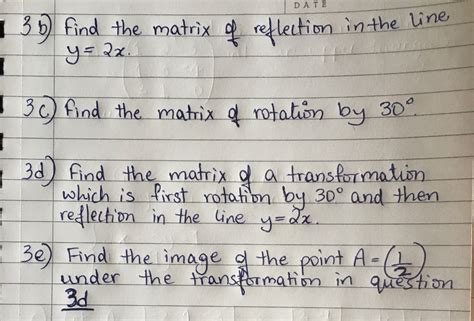 DATE
3b) Find the matrix of reflection in the line
y = 2x.
3c) Find the matrix of rotation by 30°.
3d) Find the matrix of a transformation
which is first rotation by 30° and then
reflection in the line y=2x.
3e) Find the image of the point A = (1/2)
under the transformation in question
3d